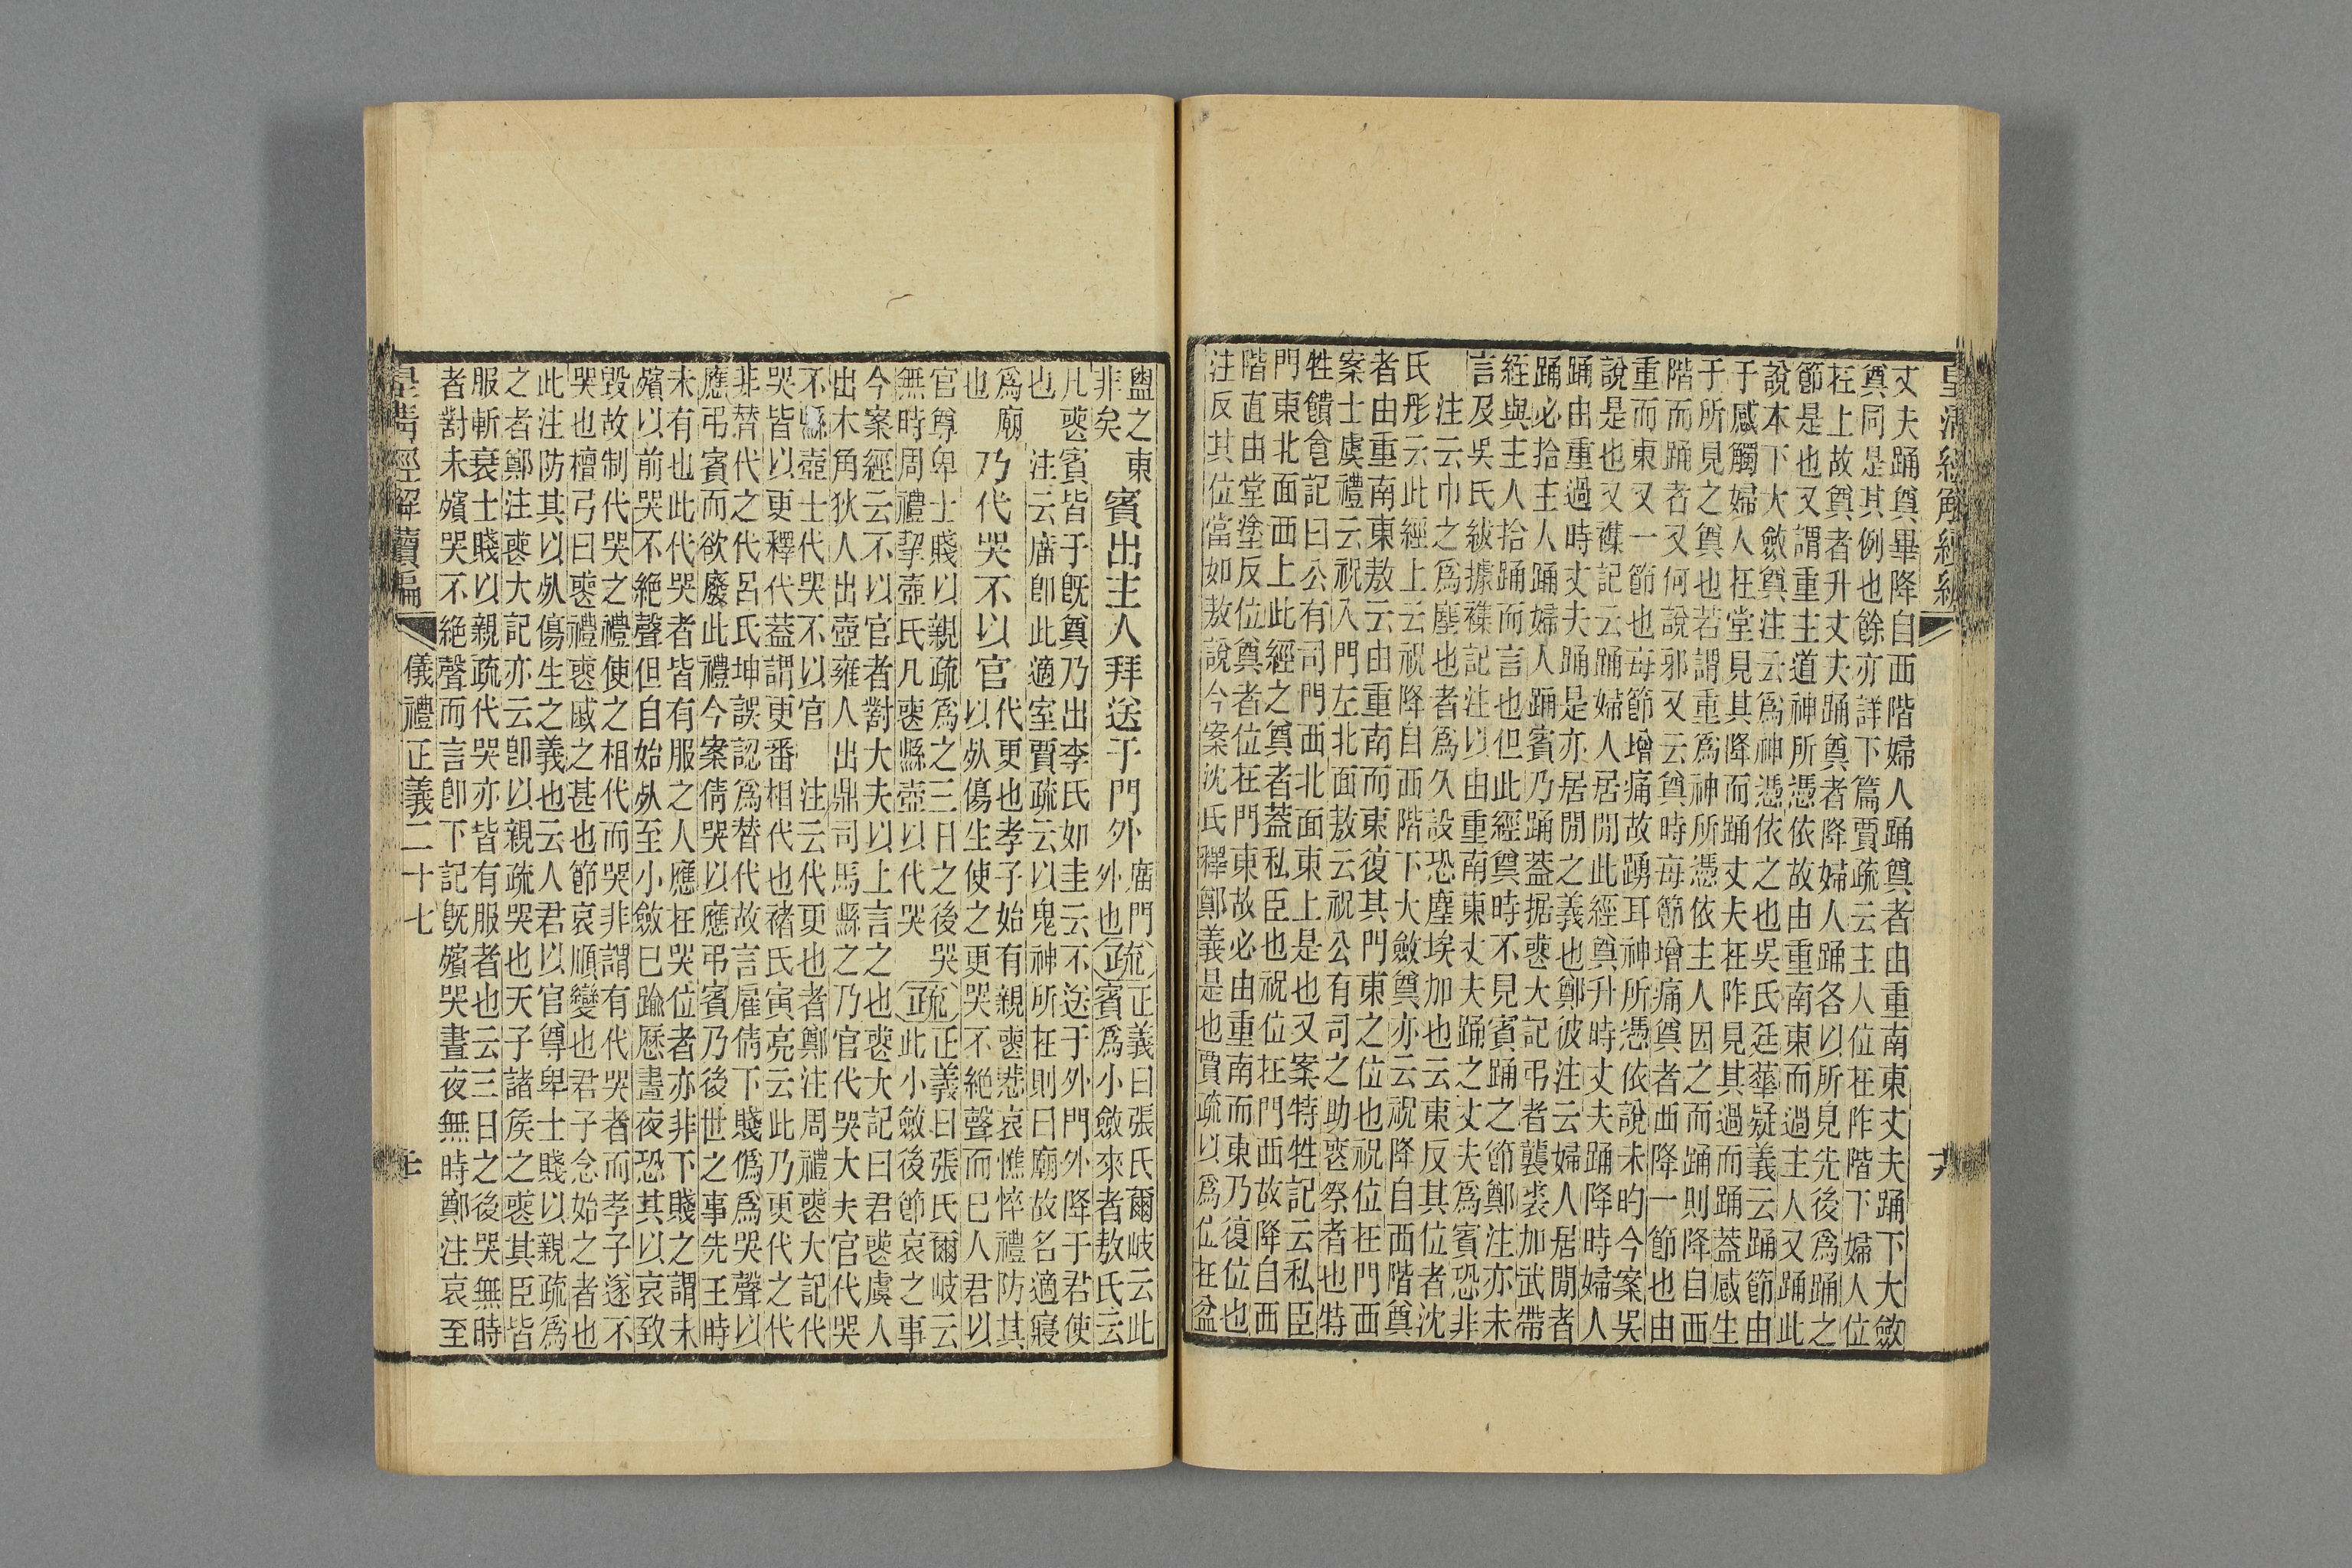 皇清經解續編
丈夫踊奠畢降自西階婦人踊奠者由重南東丈夫踊下大斂
奠同是其例也餘亦詳下篇賈疏云主人位在阼階下婦人位
在上故奠者升丈夫踊奠者降婦人踊各以所見先後爲踊之
節是也又謂重主道神所憑依故由重南東而過主人又踊此
說本下大斂奠注云爲神憑依之也吳氏廷華疑義云踊節由
于感觸婦人在堂見其降而踊丈夫在阼見其過而踊蓋感生
于所見之奠也若謂重爲神所憑依主人因之而踊則降自西
階而踊者又何說邪又云奠時每節增痛奠者西降一節也由
重而東又一節也每節增痛故踴耳神所憑依說未昀今案吳
說是也又襍記云踊婦人居閒此經奠升時丈夫踊降時婦人
踊由重過時丈夫踊是亦居閒之義也鄭彼注云婦人居閒者
踊必拾主人踊婦人踊賓乃踊蓋据喪大記弔者襲裘加武帶
絰與主人拾踊而言也但此經奠時不見賓踊之節鄭注亦未
言及吳氏紱據襍記注以由重南東丈夫踊之丈夫爲賓恐非
注云巾之爲塵也者爲久設恐塵埃加也云東反其位者沈
氏彤云此經上云祝降自西階下大斂奠亦云祝降自西階奠
者由重南東敖云由重南而東復其門東之位也祝位在門西
案士虞禮云祝入門左北面敖云祝公有司之助喪祭者也特
牲饋食記曰公有司門西北面東上是也又案特牲記云私臣
門東北面西上此經之奠者蓋私臣也祝位在門西故降自西
階直由堂塗反位奠者位在門東故必由重南而東乃復位也
注反其位當如敖說今案沈氏釋鄭義是也賈疏以爲位在盆
盥之東賓出主人拜送于門外廟門外也疏正義曰張氏爾岐云此
非矣賓爲小斂來者敖氏云
凡喪賓皆于旣奠乃出李氏如圭云不送于外門外降于君使
也注云廟卽此適室賈疏云以鬼神所在則曰廟故名適寢
爲廟乃代哭不以官代更也孝子始有親喪悲哀憔悴禮防其
也以死傷生使之更哭不絕聲而已人君以
官尊卑士賤以親疏爲之三日之後哭疏正義曰張氏爾岐云
無時周禮挈壺氏凡喪縣壺以代哭此小斂後節哀之事
今案經云不以官者對大夫以上言之也喪大記曰君喪虞人
出木角狄人出壺雍人出鼎司馬縣之乃官代哭大夫官代哭
不縣壺士代哭不以官注云代更也者鄭注周禮喪大記代
哭皆以更釋代蓋謂更番相代也褚氏寅亮云此乃更代之代
非替代之代呂氏坤誤認爲替代故言雇倩下賤僞爲哭聲以
應弔賓而欲廢此禮今案倩哭以應弔賓乃後世之事先王時
未有也此代哭者皆有服之人應在哭位者亦非下賤之謂未
殯以前哭不絕聲但自始死至小斂已踰歷晝夜恐其以哀致
毀故制代哭之禮使之相代而哭非謂有代哭者而孝子遂不
哭也檀弓曰喪禮喪戚之甚也節哀順變也君子念始之者也
此注防其以死傷生之義也云人君以官尊卑士賤以親疏爲
之者鄭注喪大記亦云卽以親疏哭也天子諸矦之喪其臣皆
服斬衰士賤以親疏代哭亦皆有服者也云三日之後哭無時
者對未殯哭不絕聲而言卽下記旣殯哭晝夜無時鄭注哀至
皇清經解續編
儀禮正義二十七